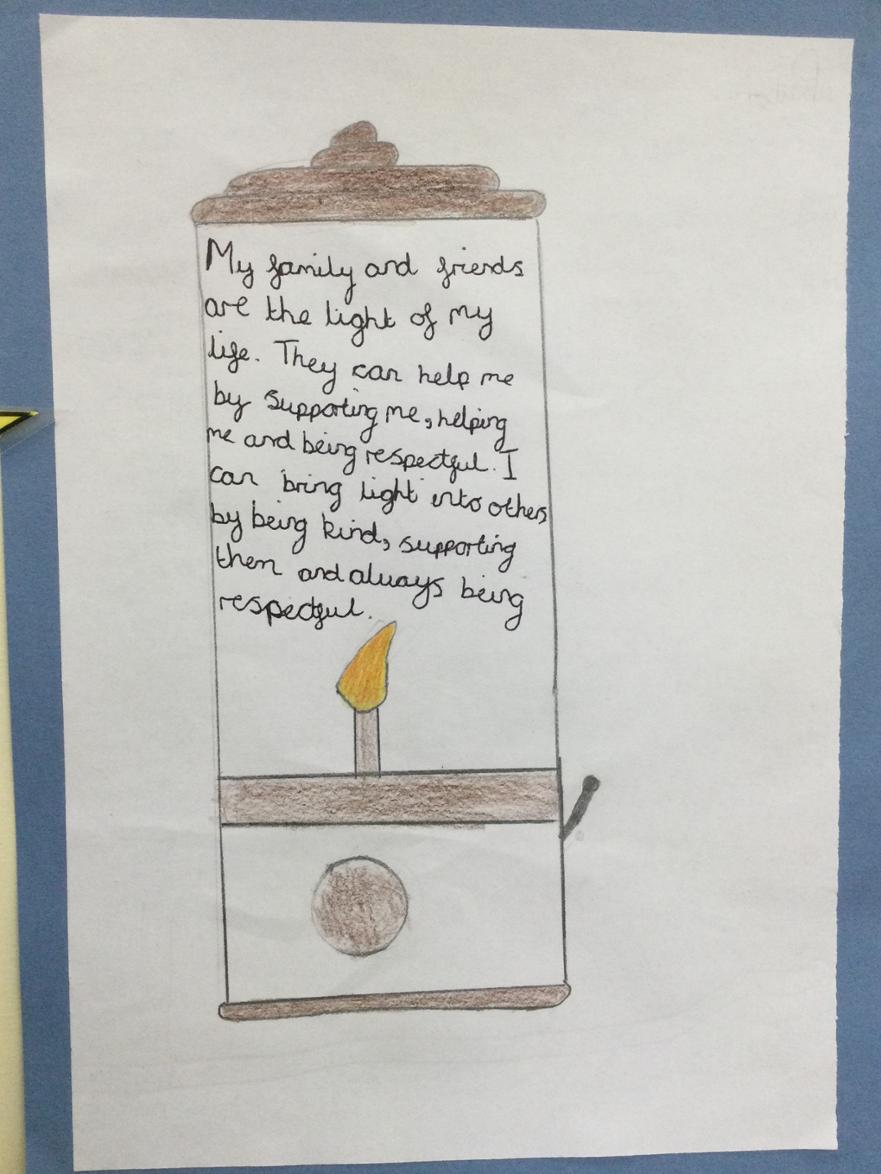 My family and friends
are the light of my
life. They can help me
by supporting me, helping
me and being respectful. I
can bring light into others
by being kind, supporting
them and always being
respectful.